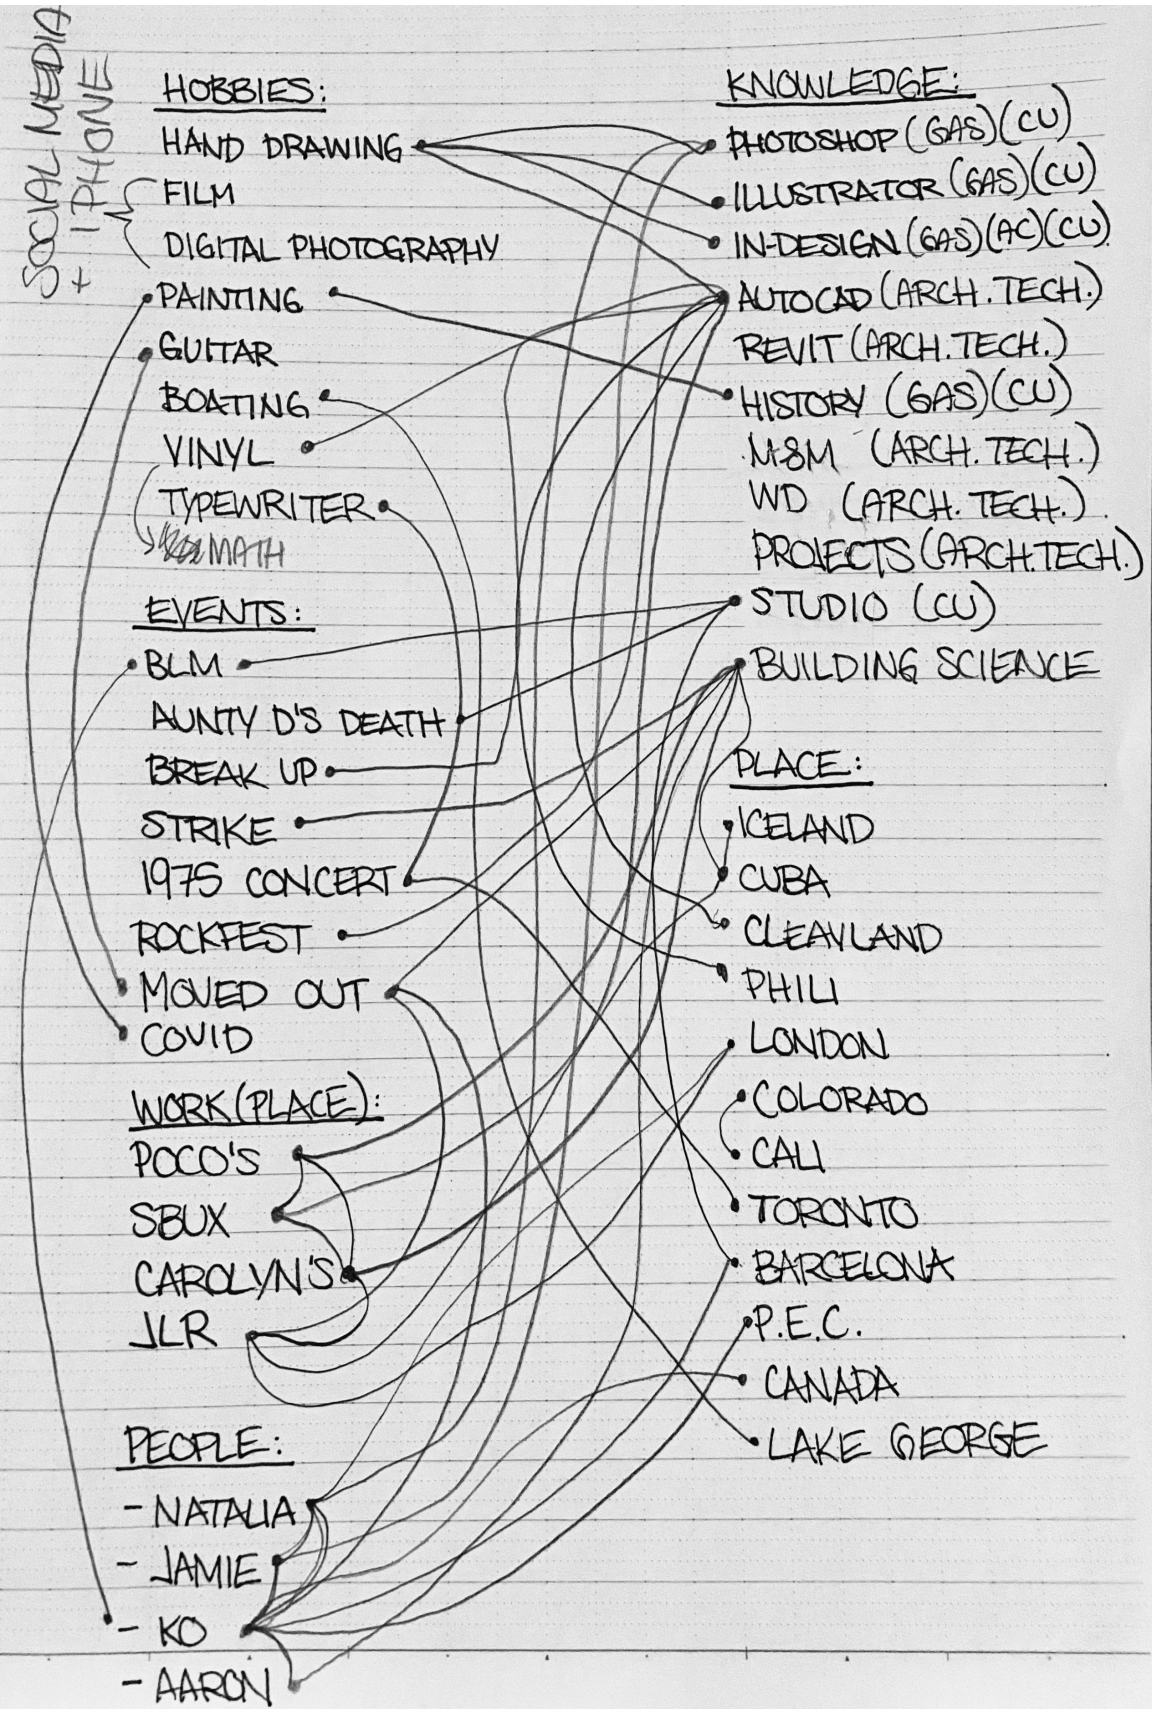 SOCIAL MEDIA
+ IPHONE
HOBBIES:
HAND DRAWING
FILM
DIGITAL PHOTOGRAPHY
PAINTING
GUITAR
BOATING
VINYL
TYPEWRITER
MATH
EVENTS:
BLM
AUNTY D'S DEATH
BREAK UP
STRIKE
1975 CONCERT
ROCKFEST
MOVED OUT
COVID
WORK (PLACE):
POCO'S
SBUX
CAROLYN'S
JLR
PEOPLE:
- NATALIA
- JAMIE
- KO
- AARON
KNOWLEDGE:
PHOTOSHOP (GAS)(CU)
ILLUSTRATOR (GAS)(CU)
IN-DESIGN (GAS)(AC)(CU)
AUTOCAD (ARCH. TECH.)
REVIT (ARCH. TECH.)
HISTORY (GAS)(CU)
M&M (ARCH. TECH.)
WD (ARCH. TECH.)
PROJECTS (ARCH. TECH.)
STUDIO (CU)
BUILDING SCIENCE
PLACE:
ICELAND
CUBA
CLEAVLAND
PHILI
LONDON
COLORADO
CALI
TORONTO
BARCELONA
P.E.C.
CANADA
LAKE GEORGE